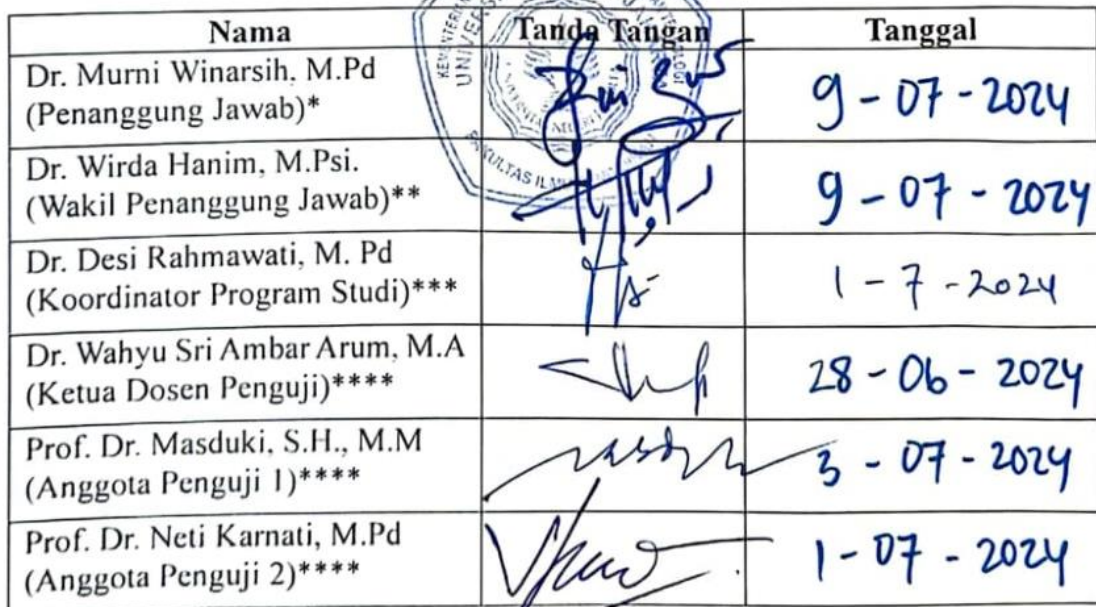 Nama Tanda Tangan Tanggal
Dr. Murni Winarsih, M.Pd
(Penanggung Jawab)* 9 - 07 - 2024
Dr. Wirda Hanim, M.Psi.
(Wakil Penanggung Jawab)** 9 - 07 - 2024
Dr. Desi Rahmawati, M. Pd
(Koordinator Program Studi)*** 1 - 7 - 2024
Dr. Wahyu Sri Ambar Arum, M.A
(Ketua Dosen Penguji)**** 28 - 06 - 2024
Prof. Dr. Masduki, S.H., M.M
(Anggota Penguji 1)**** 3 - 07 - 2024
Prof. Dr. Neti Karnati, M.Pd
(Anggota Penguji 2)**** 1 - 07 - 2024